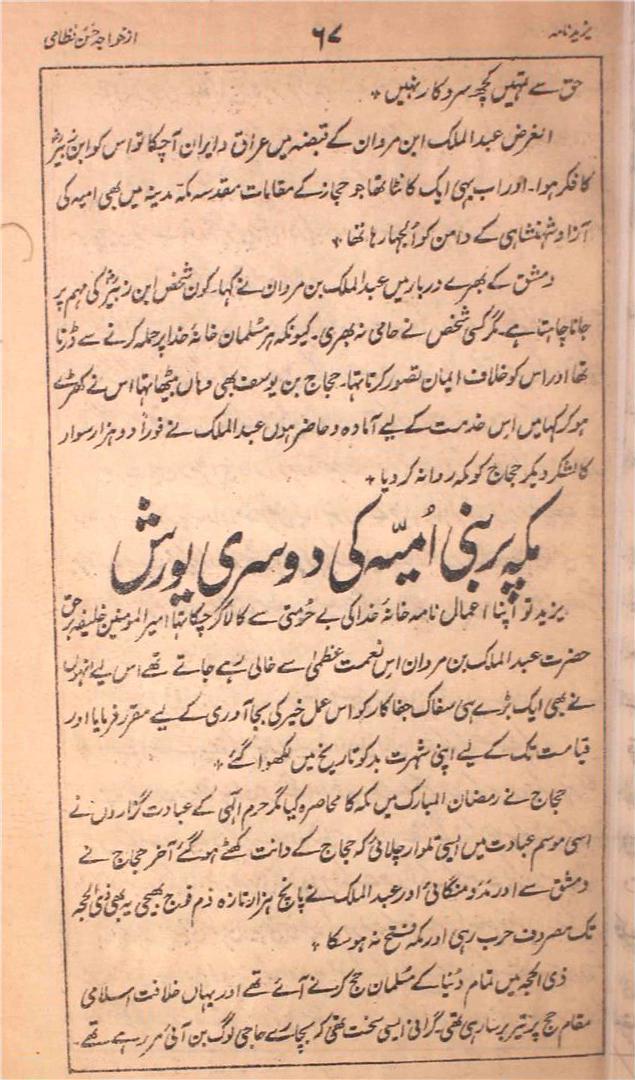 یزید نامہ
۶۷
از خواجہ حسن نظامی
حق سے تمہیں کچھ سروکار نہیں ٭
الغرض عبدالملک ابن مردان کے قبضہ میں عراق و ایران آچکا تو اس کو ابن زبیرؓ
کا فکر ہوا۔ اور اب یہی ایک کانٹا تھا جو حجاز کے مقامات مقدسہ مکہ مدینہ میں بھی امیہ کی
آزاد شہنشاہی کے دامن کو اُلجھا رہا تھا ٭
دمشق کے بھرے دربار میں عبدالملک بن مردان نے کہا۔ کون شخص ابن زبیرؓ کی مہم پر
جانا چاہتا ہے۔ مگر کسی شخص نے حامی نہ بھری۔ کیونکہ ہر مسلمان خانۂ خدا پر حملہ کرنے سے ڈرتا
تھا اور اس کو خلاف ایمان تصور کرتا تہا۔ حجاج بن یوسف بھی وہاں بیٹھا تہا اس نے کھڑے
ہو کر کہا میں اس خدمت کے لیے آمادہ و حاضر ہوں عبدالملک نے فوراً دو ہزار سوار
کا لشکر دیکر حجاج کو مکہ روانہ کر دیا ٭
مکہ پر بنی اُمیّہ کی دوسری یورش
یزید تو اپنا اعمال نامہ خانۂ خدا کی بے حُرمتی سے کالا کر چکا تہا امیر المومنین خلیفہ برحق
حضرت عبدالملک بن مردان اس نعمت عظمیٰ سے خالی رہے جاتے تھے اس لیے انہوں
نے بھی ایک بڑے ہی سفاک جفا کار کو اس عمل خیر کی بجا آوری کے لیے مقرر فرمایا اور
قیامت تک کے لیے اپنی شہرت بد کو تاریخ میں لکھوا گئے ٭
حجاج نے رمضان المبارک میں مکہ کا محاصرہ کیا مگر حرم الٰہی کے عبادت گزاروں نے
اسی موسم عبادت میں ایسی تلوار چلائی کہ حجاج کے دانت کھٹے ہو گئے آخر حجاج نے
دمشق سے اور مدد منگائی اور عبدالملک نے پانچ ہزار تازہ دم فوج بھیجی یہ بھی ذی الحجہ
تک مصروف حرب رہی اور مکہ فتح نہ ہو سکا ٭
ذی الحجہ میں تمام دُنیا کے مسلمان حج کرنے آئے تھے اور یہاں خلافت اسلامی
مقام حج پر تیر برسا رہی تھی۔ گرانی ایسی سخت تھی کہ بیچارے حاجی لوگ بن آئی مر رہے تھے۔